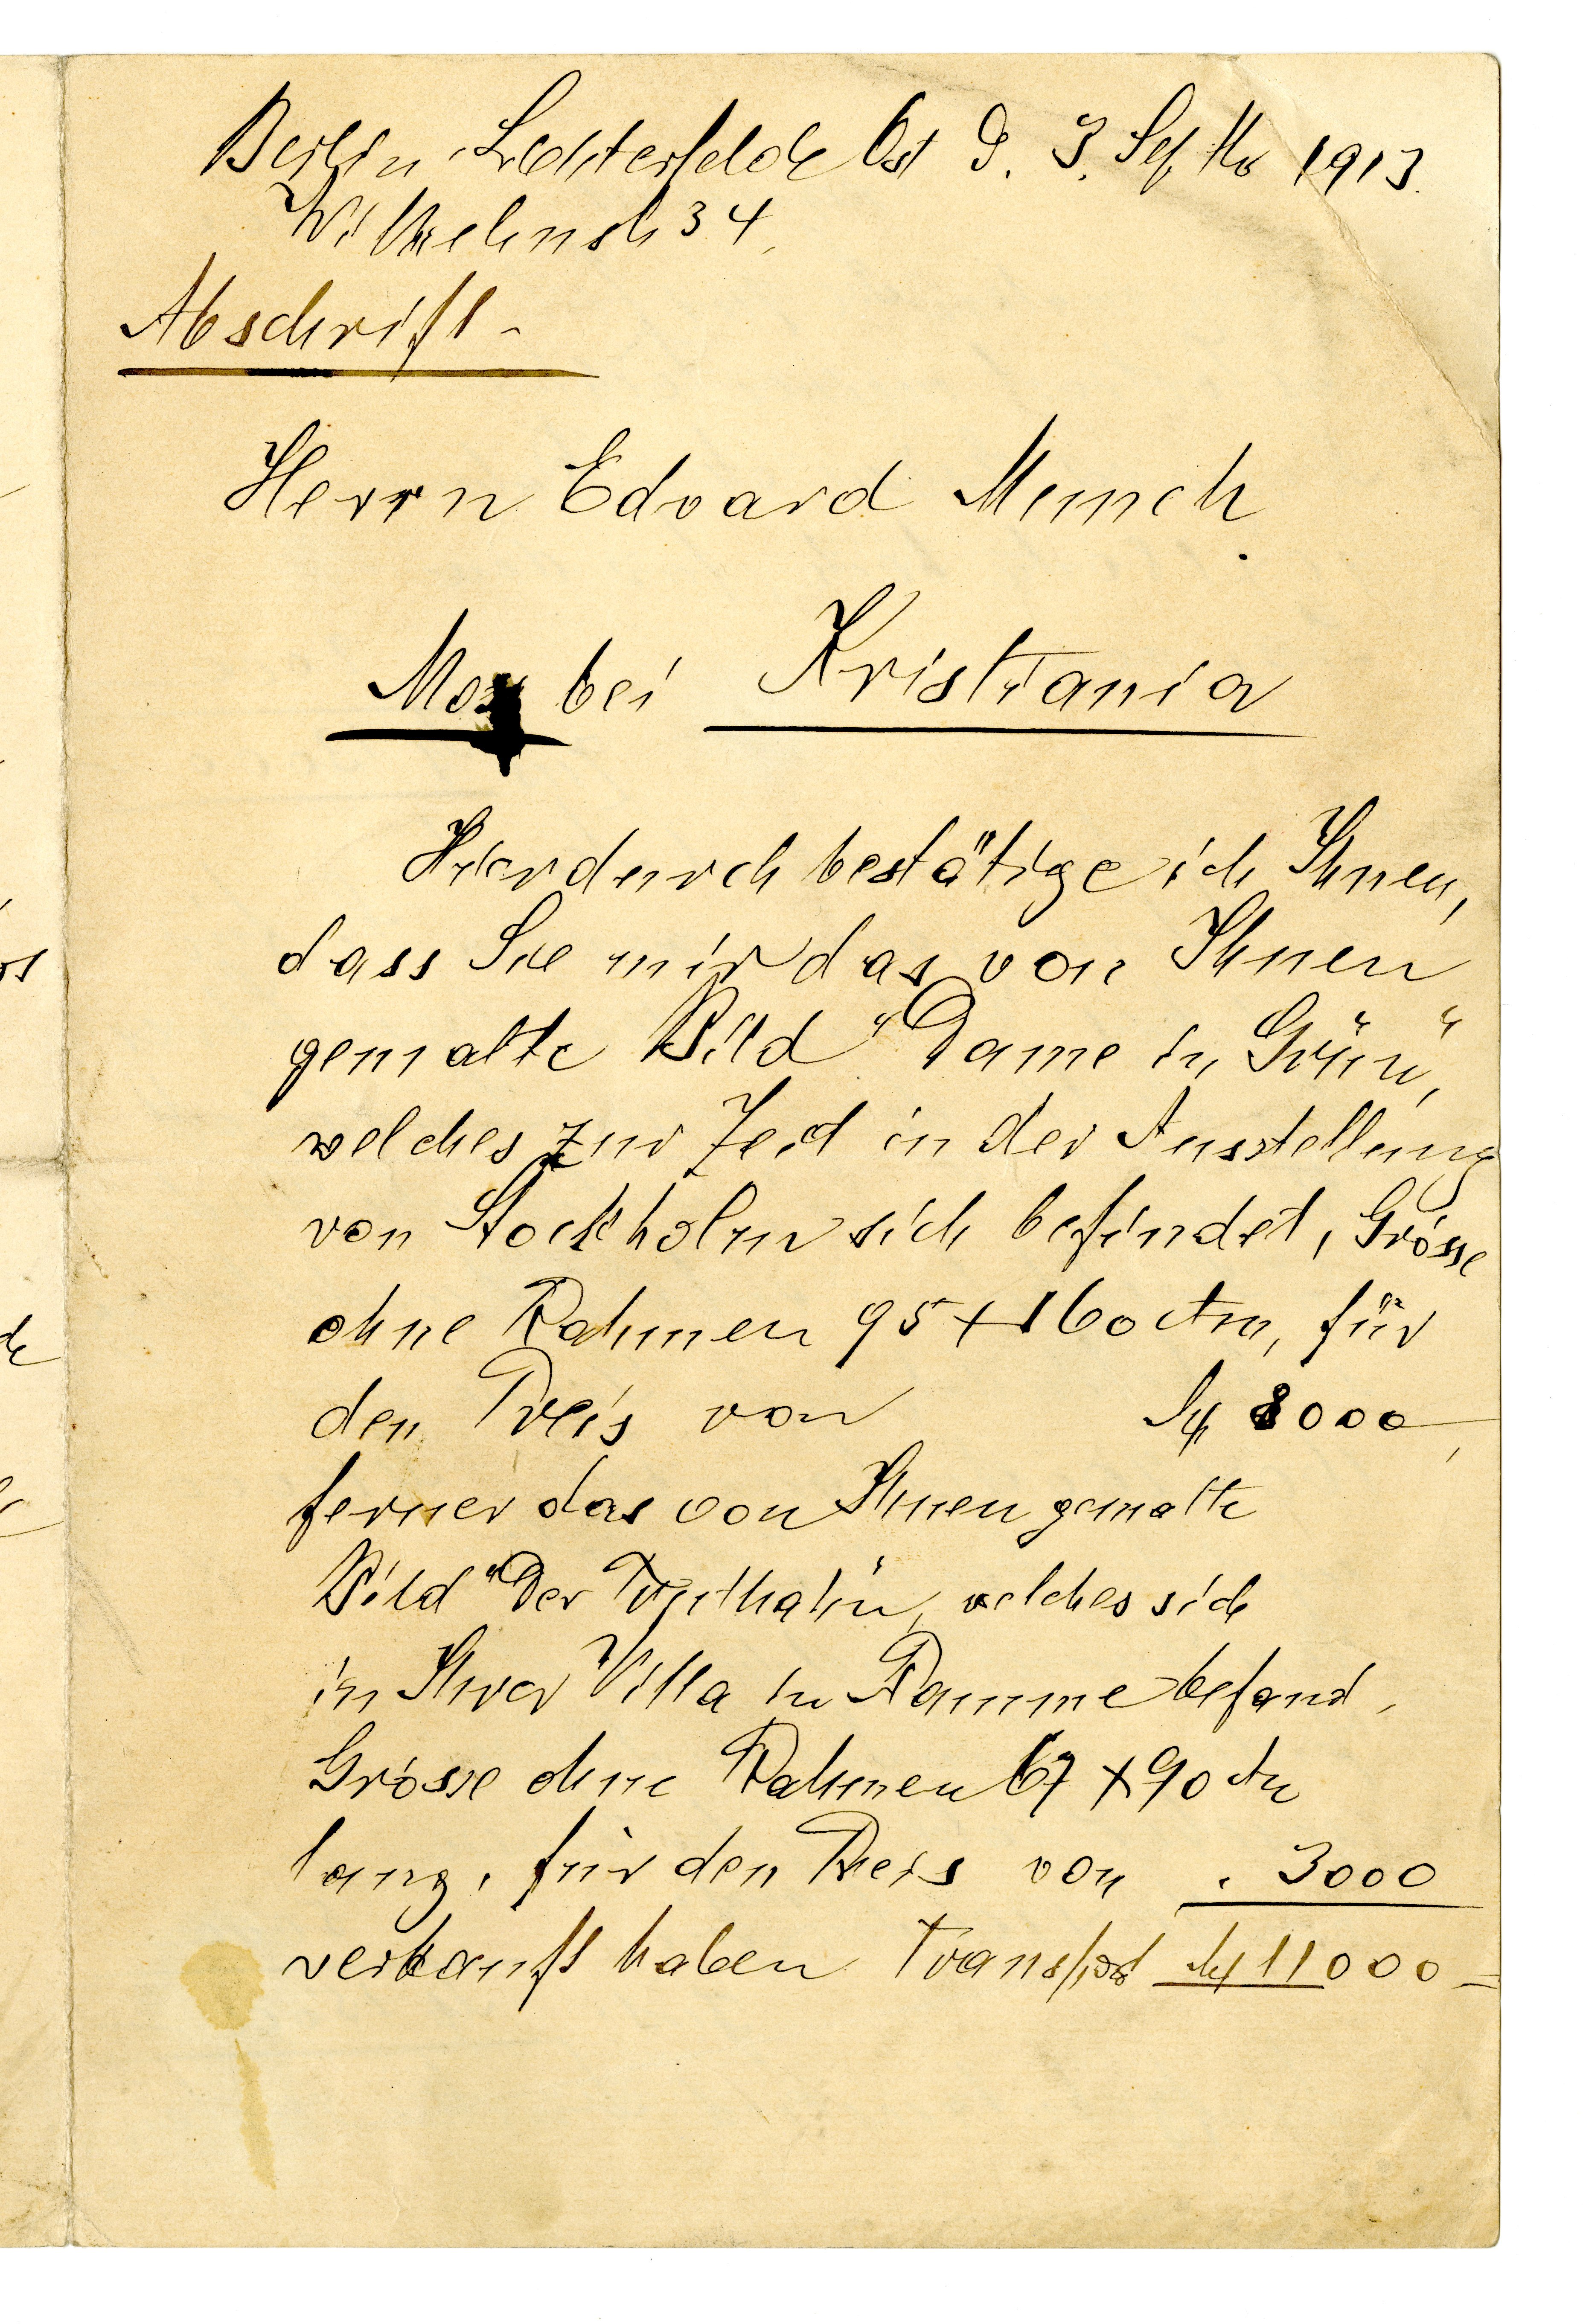 Berlin-Lichterfelde Ost d. 3. Septbr 1913.
Wilhelmstr 34,
Abschrift -
Herrn Edvard Munch.
Moss bei Kristiania
Hierdurch bestätige ich Ihnen,
dass Sie mir das von Ihnen
gemalte Bild "Dame in Grün",
welches zur Zeit in der Ausstellung
von Stockholm sich befindet, Grösse
ohne Rahmen 95 x 160 ctm, für
den Preis von M 8000,
ferner das von Ihnen gemalte
Bild "Der Truthahn, welches sich
in Ihrer Villa in Ramme befand,
Grösse ohne Rahmen 67 x 90 ctm
lang, für den Preis von . 3000
verkauft haben Transport M 11000 =